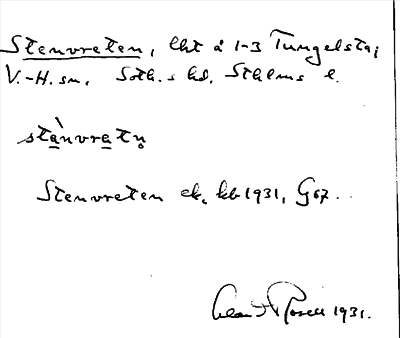 Stenvreten, lht å 1-3 Tungelsta;
V.-H. sn, Soth.s hd, Sthlms l.
stànvretn̥
Stenvreten ek. kb 1931, G67.
1931.